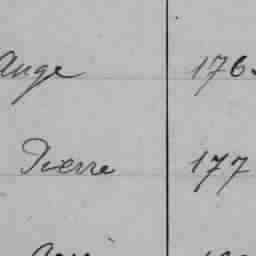 Ange 176
Pierre 177